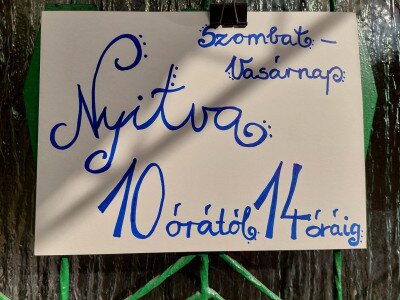 Szombat -
Vasárnap
Nyitva
10 órától 14 óráig